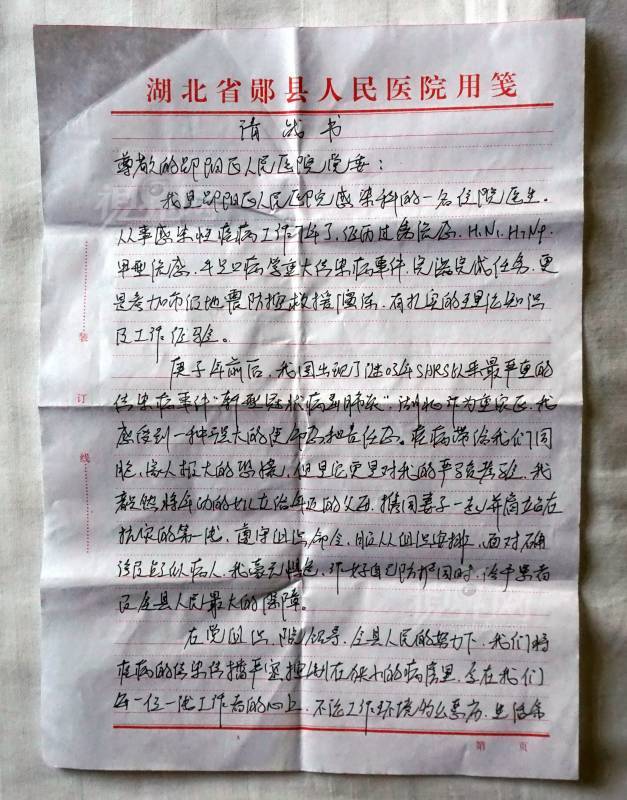 湖北省郧县人民医院用笺
请战书
尊敬的郧阳区人民医院党委：
我是郧阳区人民医院感染科的一名住院医生。
从事感染性疾病工作了，经历过禽流感、H1N1、H7N9、
甲型流感、手足口病等重大传染病事件，完成任务，更
是参加市级地震防控救援队伍，有扎实的理论知识
及工作经验。
庚子年前后，我国出现了继03年SARS以来最严重的
传染病事件“新型冠状病毒肺炎”，湖北作为重灾区，我
感受到一种强大的使命感和责任感。疫病带给我们同
胞、家人极大的恐操，但是它更是对我的严峻考验，我
毅然将年幼的女儿交给年迈的父母，携同妻子一起并肩立站在
抗灾的第一线，遵守组织命令，服从组织安排，面对确
诊及疑似病人，我毫无惧色，作好自己防护同时，给予患者
及全县人民最大的保障。
在党组织、院领导、全县人民的努力下，我们将
疫病的传染传播严密控制在狭小的病房里，在我们
每一位一线工作者的心上，不论工作环境多么恶劣，生活条
装
订
线
第 页